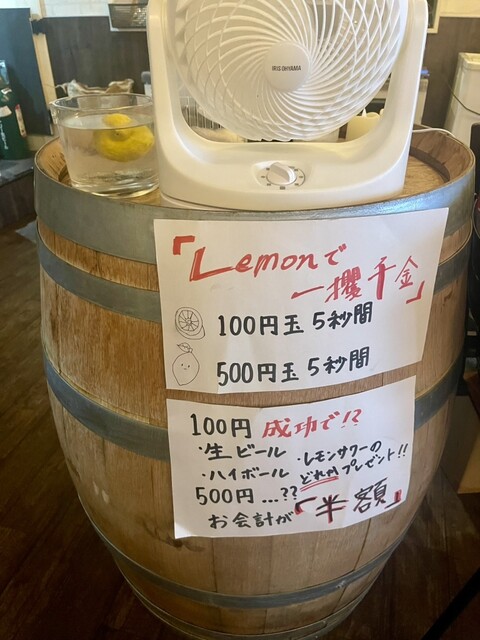 IRIS OHYAMA
「Lemonで
一攫千金」
100円玉 5秒間
500円玉 5秒間
100円 成功で!?
・生ビール ・レモンサワーの
・ハイボール どれかプレゼント!!
500円 …??
お会計が「半額」